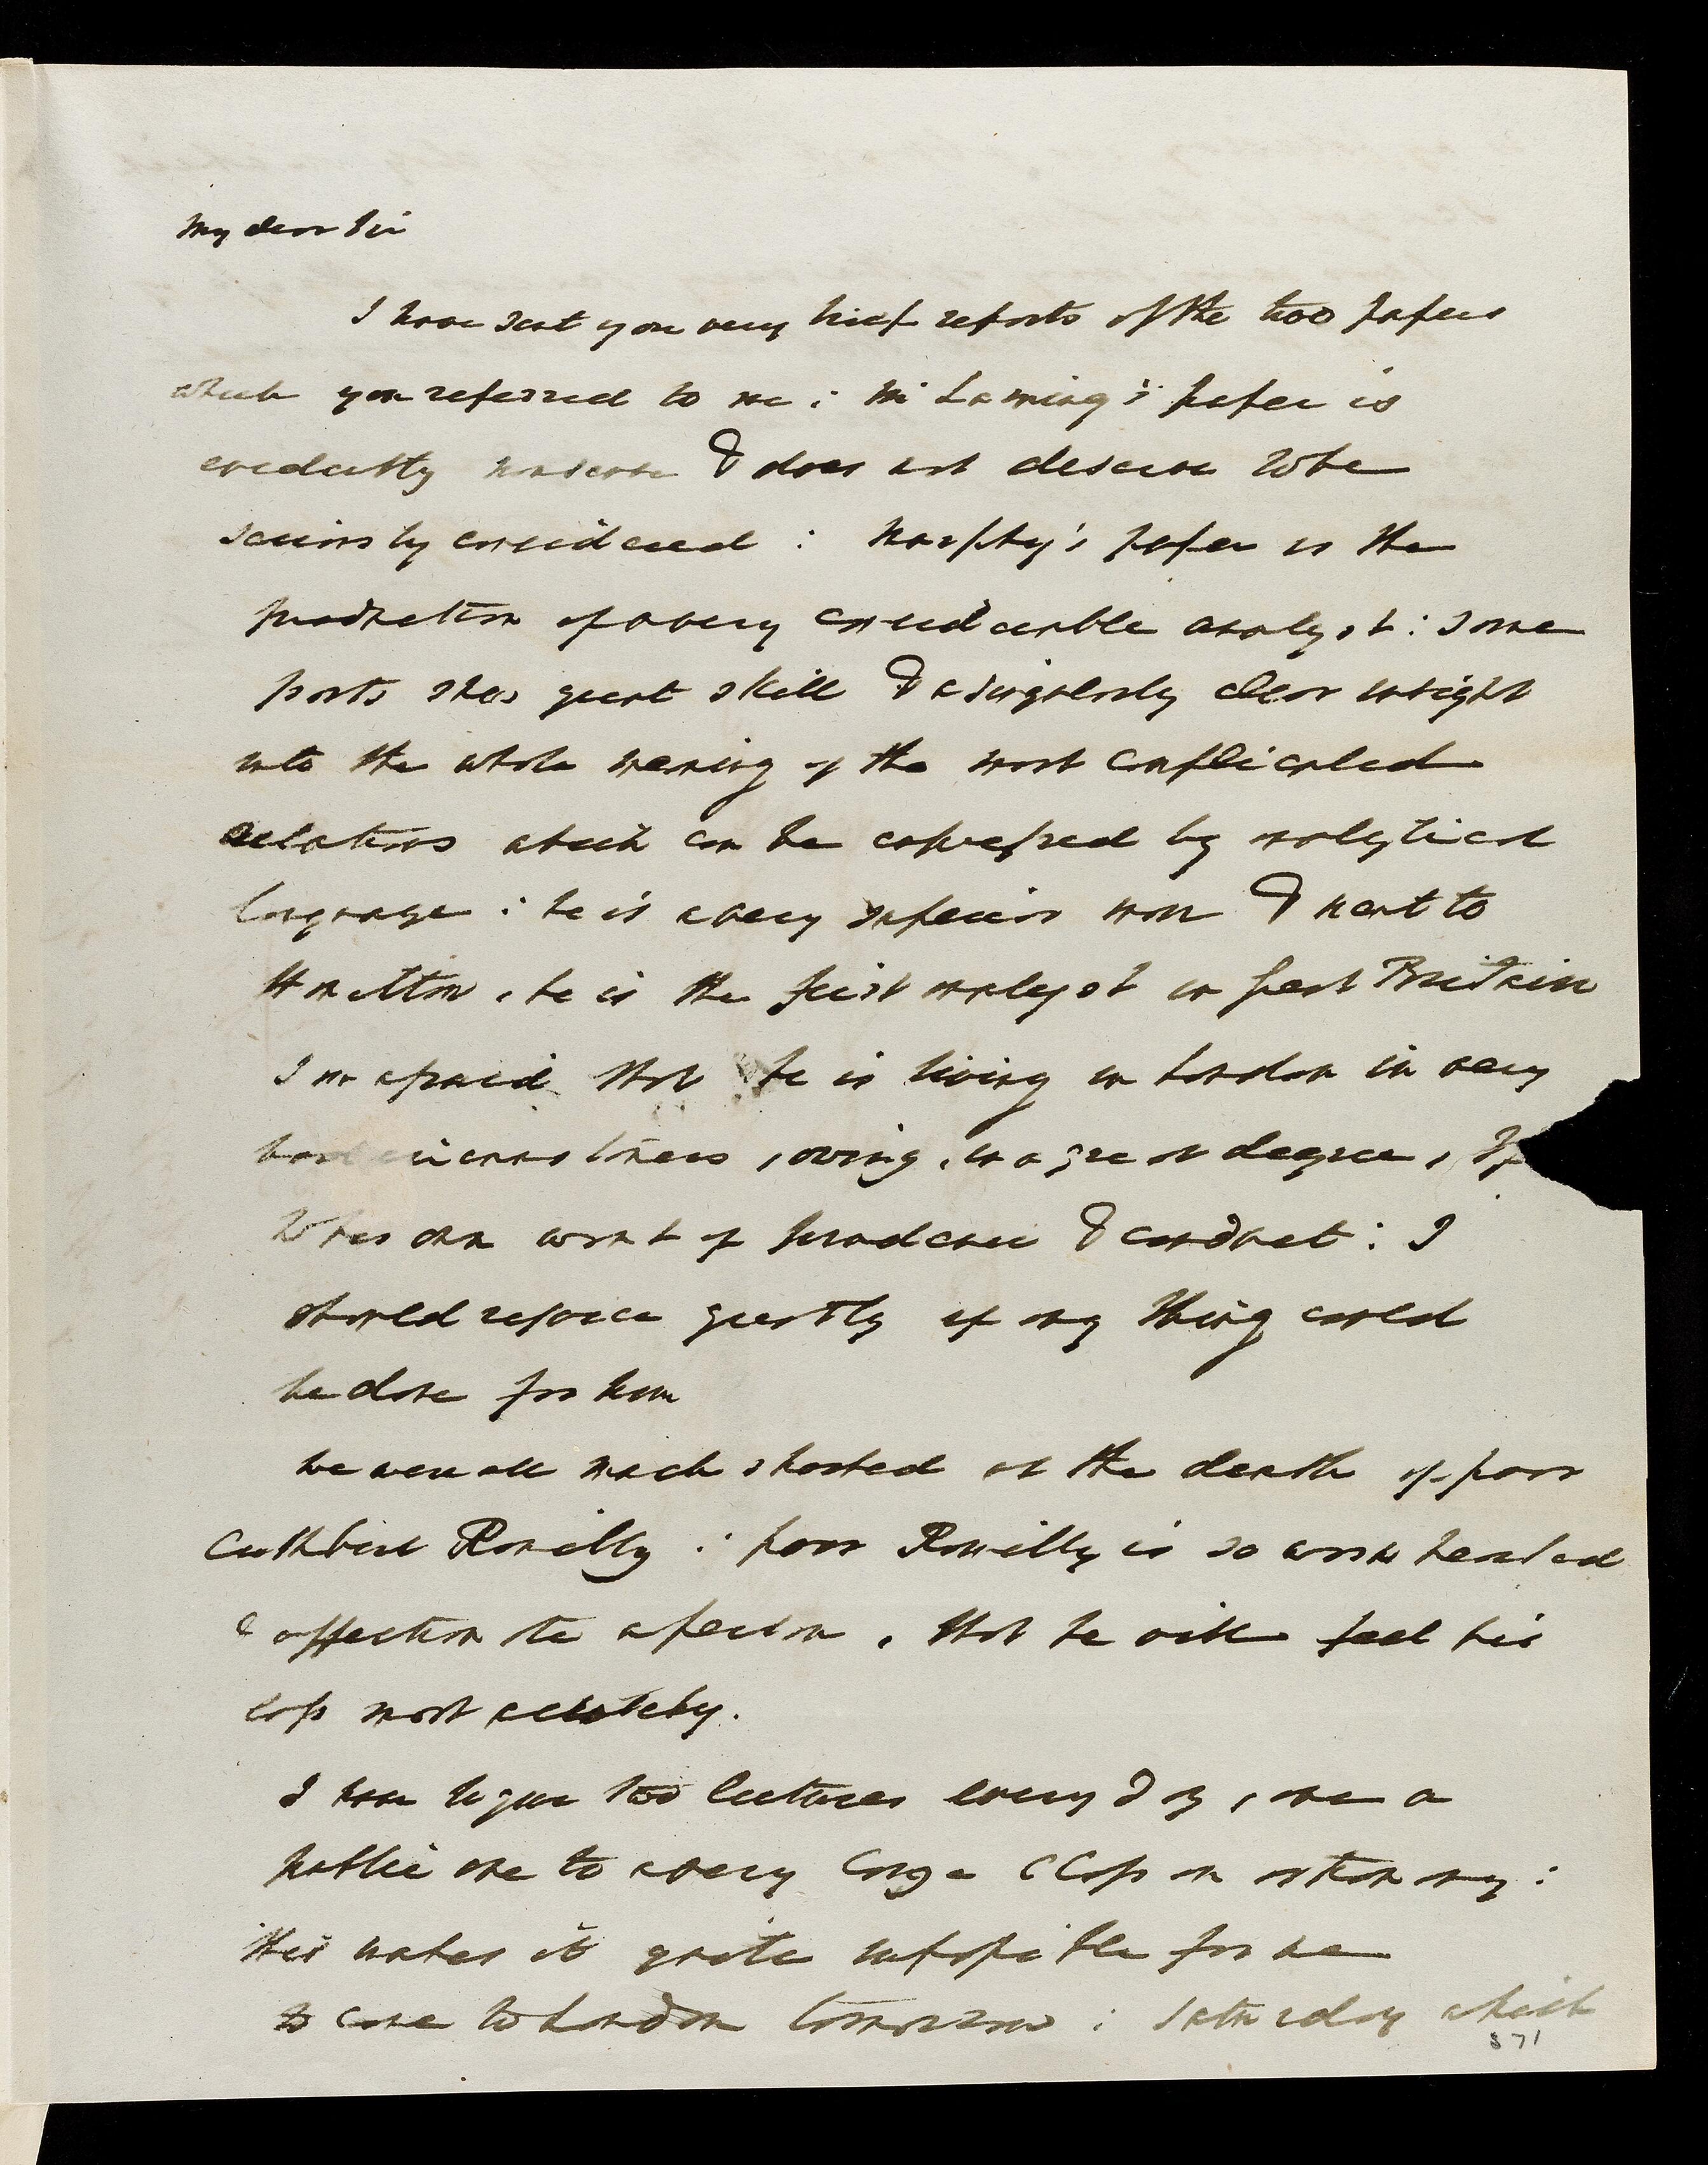 My dear Sir
I have sent you very brief reports of the two papers
which you referred to me : Mr Laming's paper is
evidently nonsense & does not deserve to be
seriously considered : Murphy's paper is the
production of a very considerable analyst : some
parts shew great skill & a singularly clear insight
into the whole meaning of the most complicated
relations which can be expressed by analytical
language : he is a very superior man & next to
Hamilton, he is the first analyst in Great Britain
I am afraid that he is living in London in very
bad circumstances, owing, in a great degree,
to his own want of prudence & conduct : I
should rejoice greatly if any thing could
be done for him
We were all much shocked at the death of poor
Cuthbert Romilly : poor Romilly is so warm hearted
& affectionate a person, that he will feel his
loss most acutely.
I have to give two lectures every day, one a
public one to a very large class on astronomy :
this makes it quite impossible for me
to come to London tomorrow : Saturday which
371